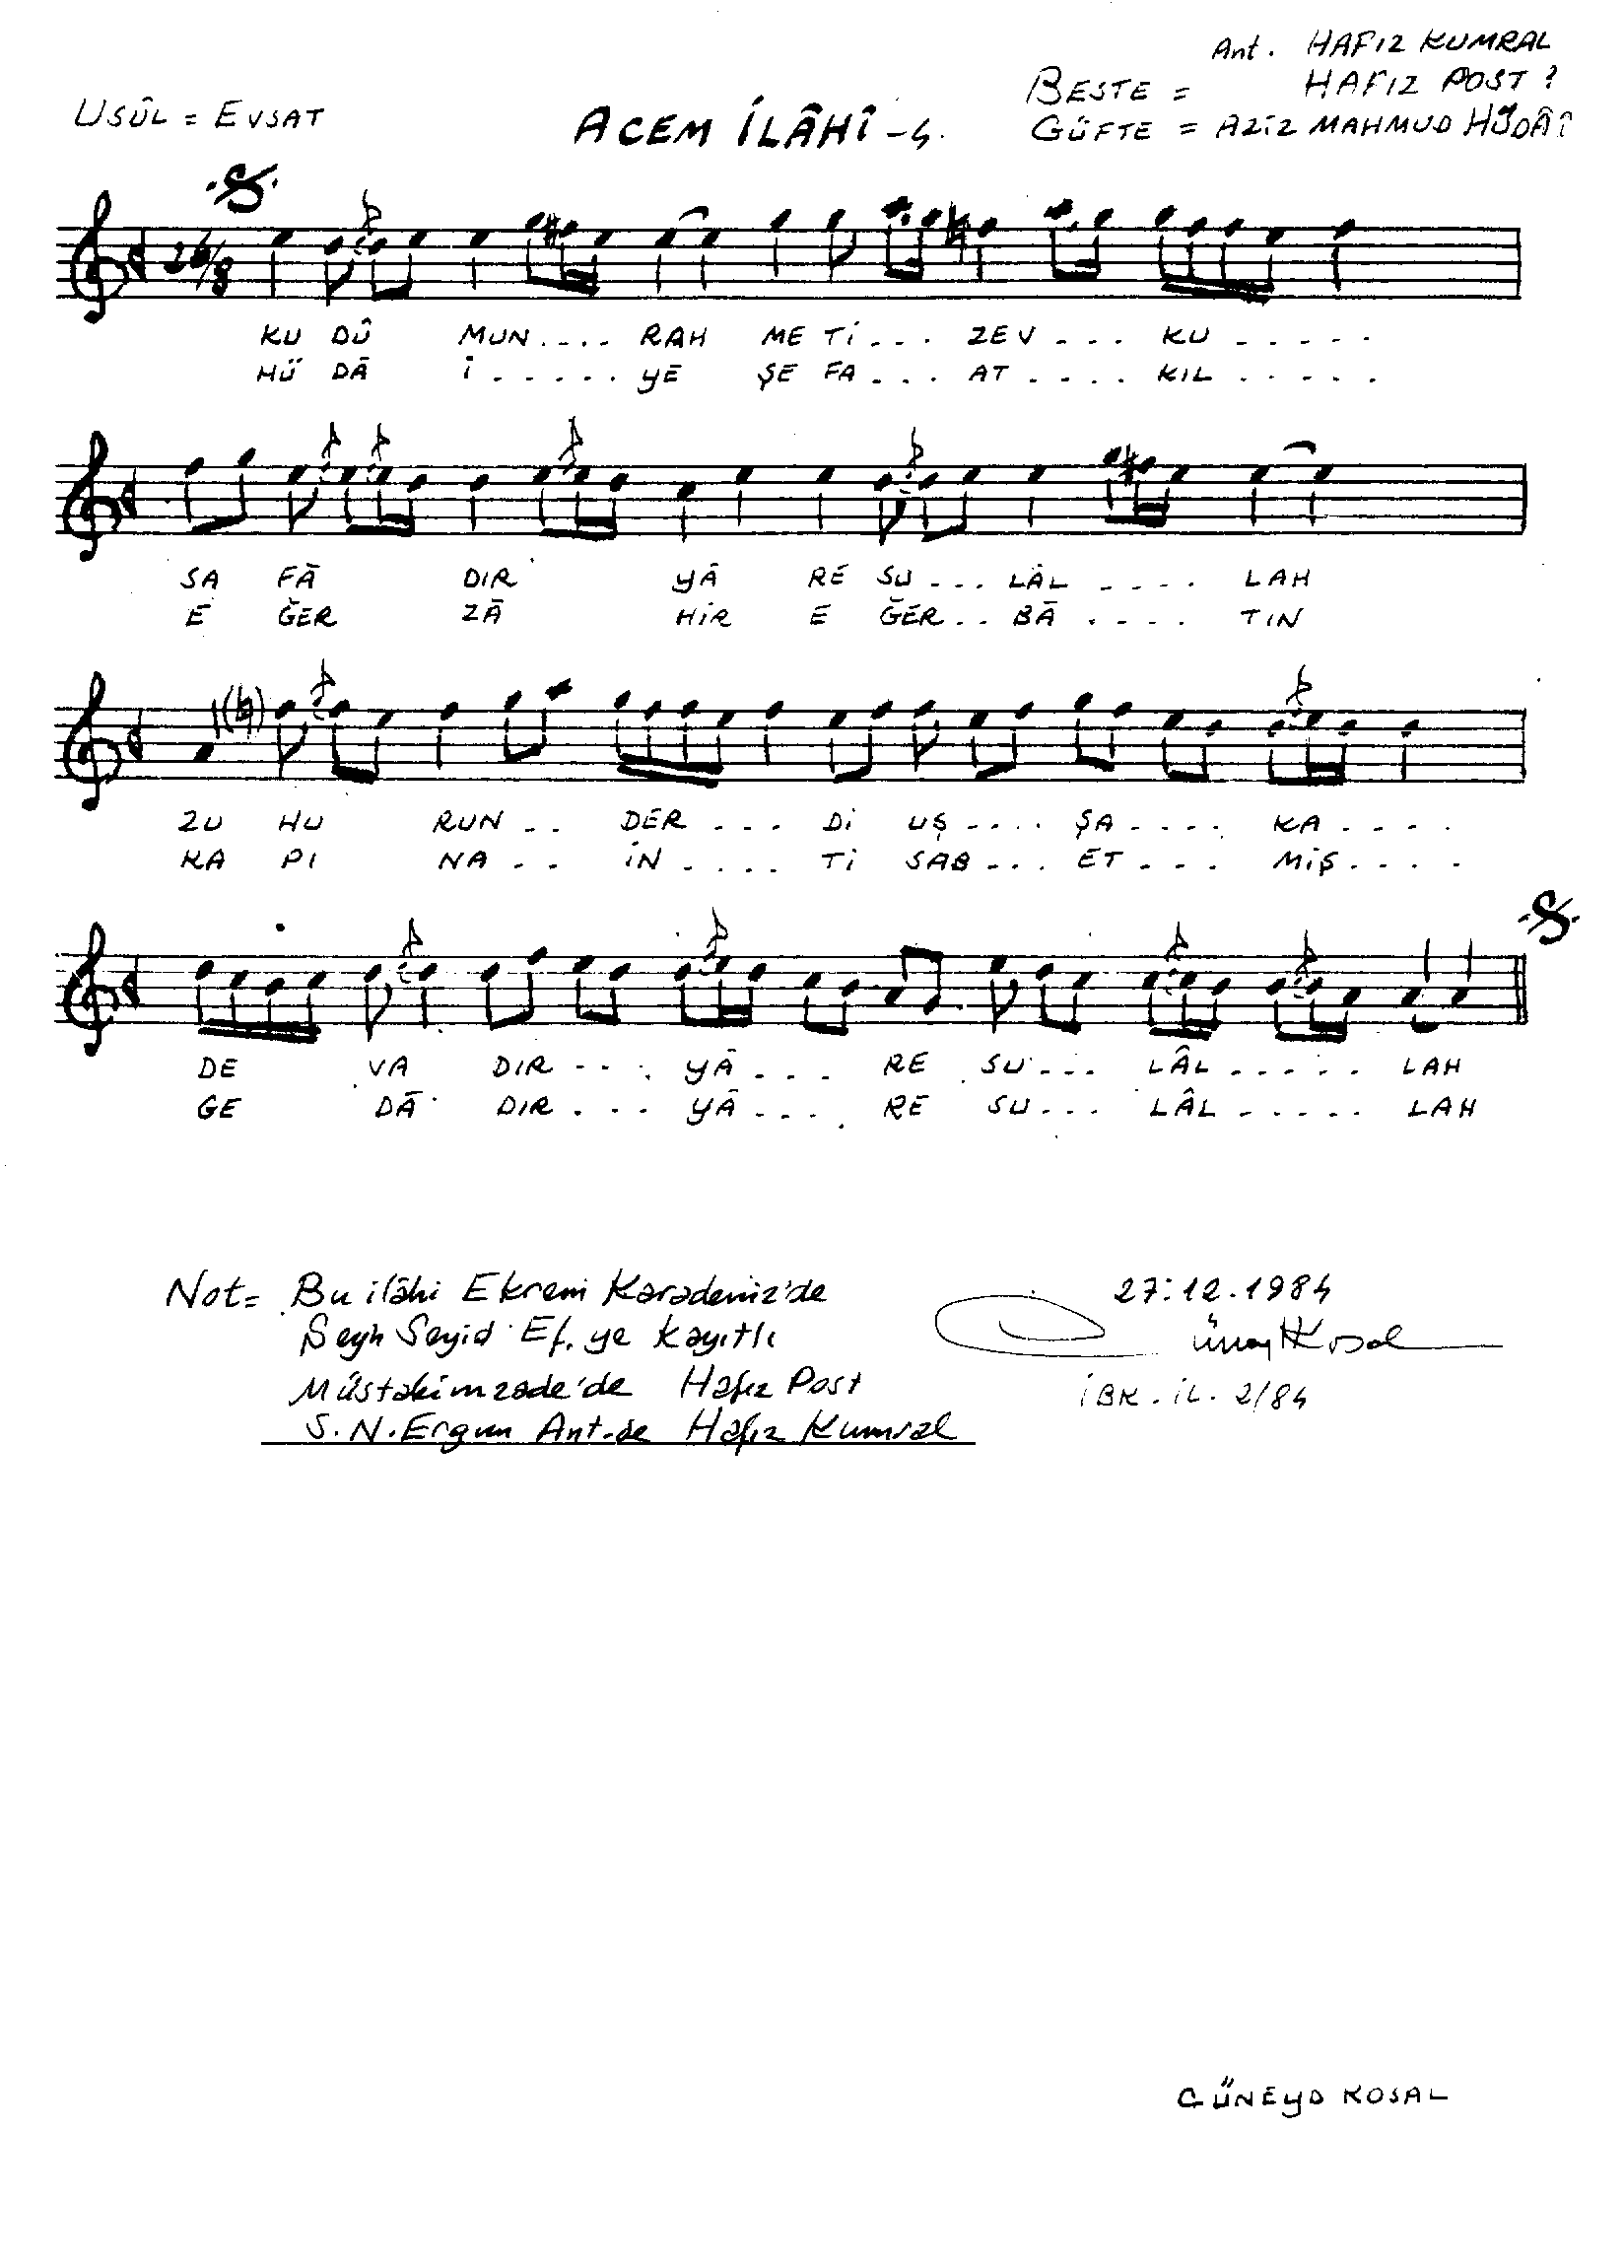 Ant. HAFIZ KUMRAL
BESTE = HAFIZ POST ?
USÛL = EVSAT
ACEM İLÂHÎ -4.
GÜFTE = AZİZ MAHMUD HÜDÂÎ
26/8
KU DÛ MUN.... RAH ME Tİ... ZEV ... KU .....
HÜ DÂ İ ...... YE ŞE FA... AT .... KIL .....
SA FÂ DIR YÂ RE SU ... LÂL .... LAH
E ĞER ZÂ HİR E ĞER.. BÂ .... TIN
ZU HU RUN .. DER ... Dİ UŞ .... ŞA .... KA ....
KA PI NA .. İN .... Tİ SAB ... ET ... MİŞ ....
DE VA DIR .... YÂ ... RE SU ... LÂL ..... LAH
GE DÂ DIR ... YÂ ... RE SU ... LÂL ..... LAH
Not= Bu ilâhi Ekrem Karadeniz'de
Şeyh Seyid Ef. ye Kayıtlı
Müstakimzade'de Hafız Post
S.N.Ergun Ant.de Hafız Kumral
27.12.1984
Cüneyt Kosal
İBK. İL. 2/84
CÜNEYD KOSAL